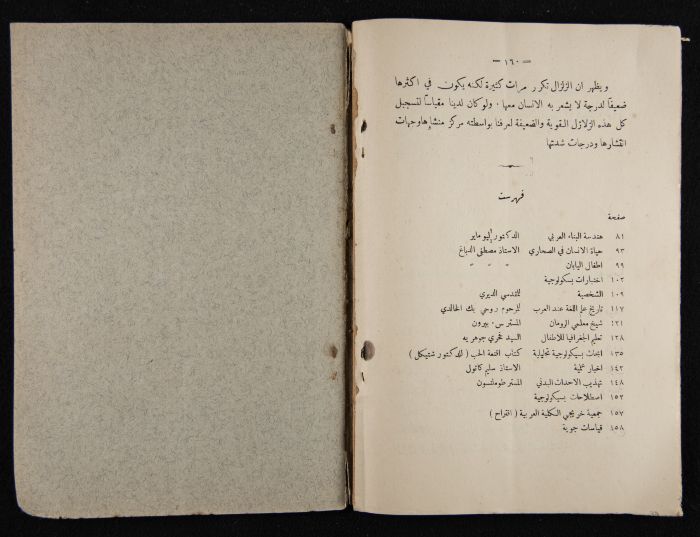 — ١٦٠ —
ويظهر ان الزلزال تكرر مرات كثيرة لكنه يكون في اكثرها
ضعيفاً لدرجة لا يشعر به الانسان معها . ولو كان لدينا مقياساً لتسجيل
كل هذه الزلازل القوية والضعيفة لعرفنا بواسطته مركز منشاءها وجهات
انتشارها ودرجات شدتها
فهرست
صفحة
٨١ هندسة البناء العربي الدكتور ليو ماير
٩٣ حياة الانسان في الصحاري الاستاذ مصطفى الدباغ
٩٩ اطفال اليابان " " "
١٠٢ اختبارات بسكولوجية
١٠٩ الشخصية للقدسي الديري
١١٧ تاريخ علم اللغة عند العرب للمرحوم روحي بك الخالدي
١٢١ شيخ معلمي الرومان المستر س. بيرون
١٢٨ تعليم الجغرافيا للاطفال السيد فخري جوهريه
١٣٥ ابحاث بسيكولوجية تحليلية كتاب اقنعة الحب ( للدكتور شتيكل )
١٤٢ اخبار علمية الاستاذ سليم كاتول
١٤٨ تهذيب الاحداث البدني المستر طوملنسون
١٥٢ اصطلاحات بسيكولوجية
١٥٧ جمعية خريجي الكلية العربية ( اقتراح )
١٥٨ قياسات جوية